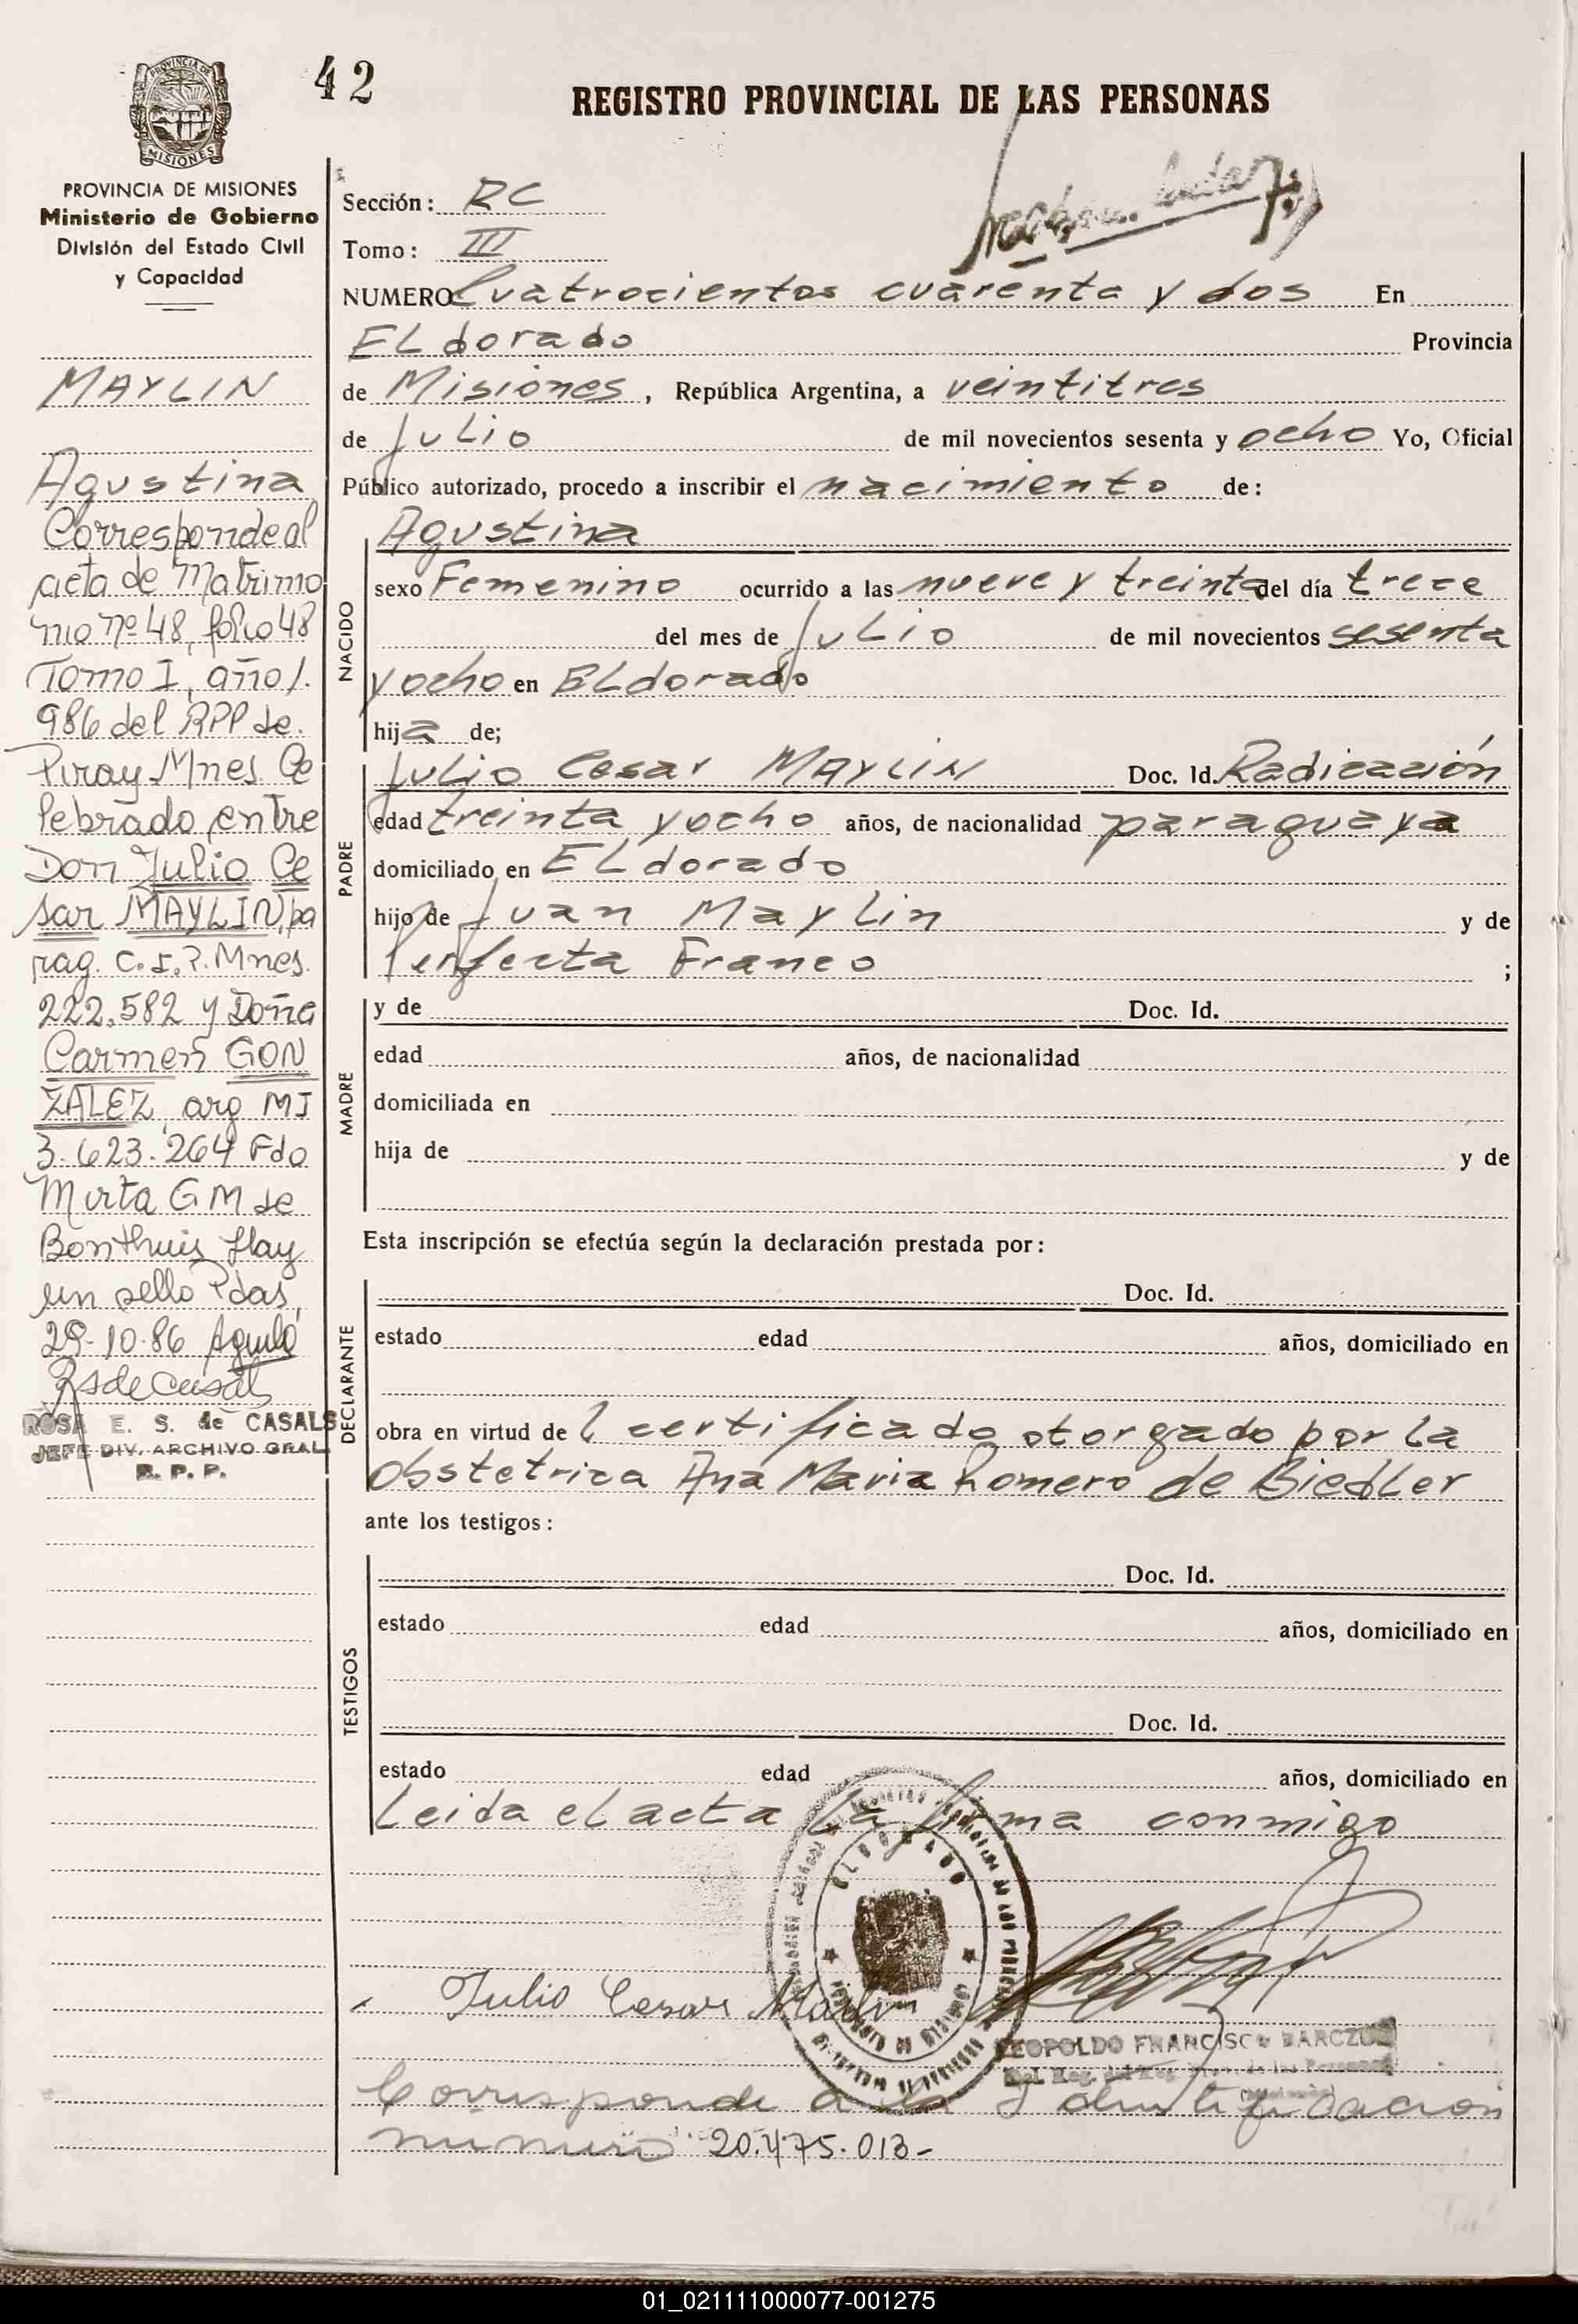 42
REGISTRO PROVINCIAL DE LAS PERSONAS
PROVINCIA DE
MISIONES
PROVINCIA DE MISIONES
Ministerio de Gobierno
División del Estado Civil
y Capacidad
MAYLIN
Agustina
Corresponde al
acta de Matrimo
nio nº 48, folio 48
Tomo I, año 1.
986 del RPP de.
Piray Mnes. Ce
lebrado entre
Don Julio Ce
sar MAYLIN, pa
rag. C.I.P. Mnes.
222.582 y Doña
Carmen GON
ZALEZ, arg MI
3.623.264 Fdo
Mirta G M de
Bonthuis Hay
un sello Pdas,
29-10-86
ROSA E. S. de CASALS
JEFE DIV. ARCHIVO GRAL
R. P. P.
Sección: RC
Tomo: III
NUMERO Cuatrocientos cuarenta y dos En
ELdorado Provincia
de Misiones, República Argentina, a veintitres
de Julio de mil novecientos sesenta y ocho Yo, Oficial
Público autorizado, procedo a inscribir el nacimiento de:
NACIDO
Agustina
sexo Femenino ocurrido a las nueve y treinta del día trece
del mes de Julio de mil novecientos sesenta
y ocho en ELdorado
hija de;
PADRE
Julio Cesar MAYLIN Doc. Id. Radicación
edad treinta y ocho años, de nacionalidad paraguaya
domiciliado en ELdorado
hijo de Juan Maylin y de
Perfecta Franco ;
MADRE
y de Doc. Id.
edad años, de nacionalidad
domiciliada en
hija de y de
Esta inscripción se efectúa según la declaración prestada por:
DECLARANTE
Doc. Id.
estado edad años, domiciliado en
obra en virtud del certificado otorgado por la
obstetrica Ana Maria Romero de Biedler
ante los testigos:
TESTIGOS
Doc. Id.
estado edad años, domiciliado en
Doc. Id.
estado edad años, domiciliado en
Leida el acta la firma conmigo
ELDORADO
Julio Cesar Maylin
LEOPOLDO FRANCISCO BARCZUK
Corresponde a la Identificacion
numero 20.475.013-
01_021111000077-001275